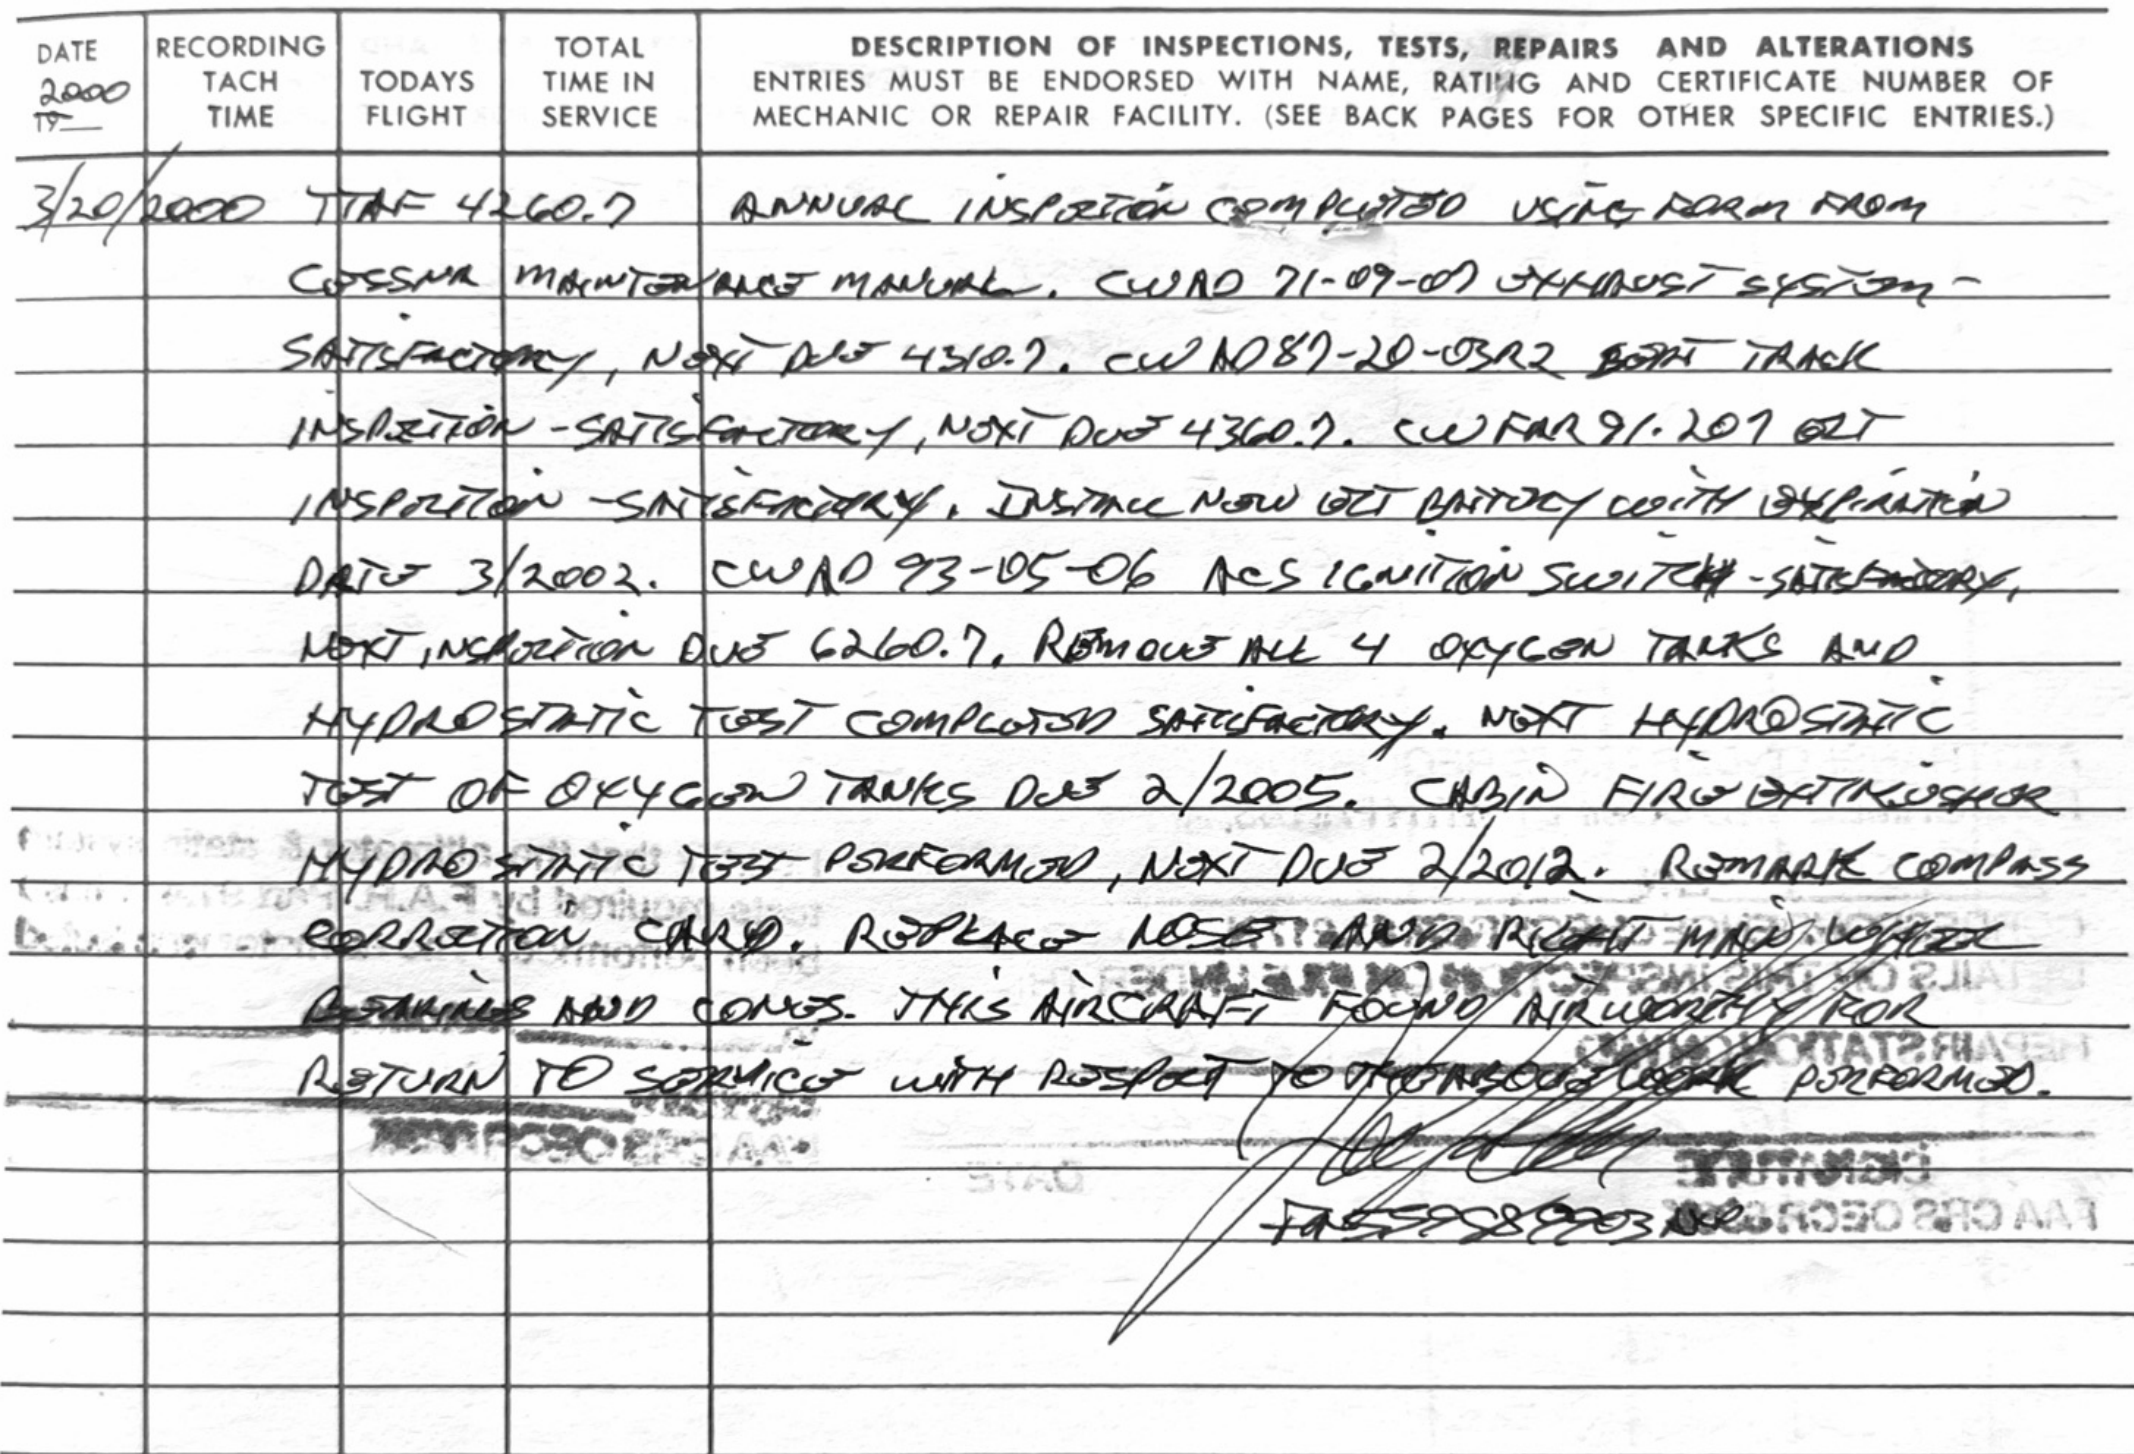 DATE 2000 19__ RECORDING TACH TIME TODAYS FLIGHT TOTAL TIME IN SERVICE DESCRIPTION OF INSPECTIONS, TESTS, REPAIRS AND ALTERATIONS
ENTRIES MUST BE ENDORSED WITH NAME, RATING AND CERTIFICATE NUMBER OF
MECHANIC OR REPAIR FACILITY. (SEE BACK PAGES FOR OTHER SPECIFIC ENTRIES.)
3/20/2000 TTAF 4260.7 ANNUAL INSPECTION COMPLETED USING FORM FROM
CESSNA MAINTENANCE MANUAL. CW AD 71-09-07 EXHAUST SYSTEM-
SATISFACTORY, NEXT DUE 4310.7. CW AD 87-20-03R2 SEAT TRACK
INSPECTION - SATISFACTORY, NEXT DUE 4360.7. CW FAR 91.207 ELT
INSPECTION - SATISFACTORY. INSTALL NEW ELT BATTERY WITH EXPIRATION
DATE 3/2002. CW AD 93-05-06 ACS IGNITION SWITCH - SATISFACTORY,
NEXT INSPECTION DUE 6260.7. REMOVE ALL 4 OXYGEN TANKS AND
HYDROSTATIC TEST COMPLETED SATISFACTORY. NEXT HYDROSTATIC
TEST OF OXYGEN TANKS DUE 2/2005. CABIN FIRE EXTINGUISHER
HYDROSTATIC TEST PERFORMED, NEXT DUE 2/2012. REMARK COMPASS
CORRECTION CARD. REPLACE NOSE AND RIGHT MAIN WHEEL
BEARINGS AND CONES. THIS AIRCRAFT FOUND AIRWORTHY FOR
RETURN TO SERVICE WITH RESPECT TO THE ABOVE WORK PERFORMED.